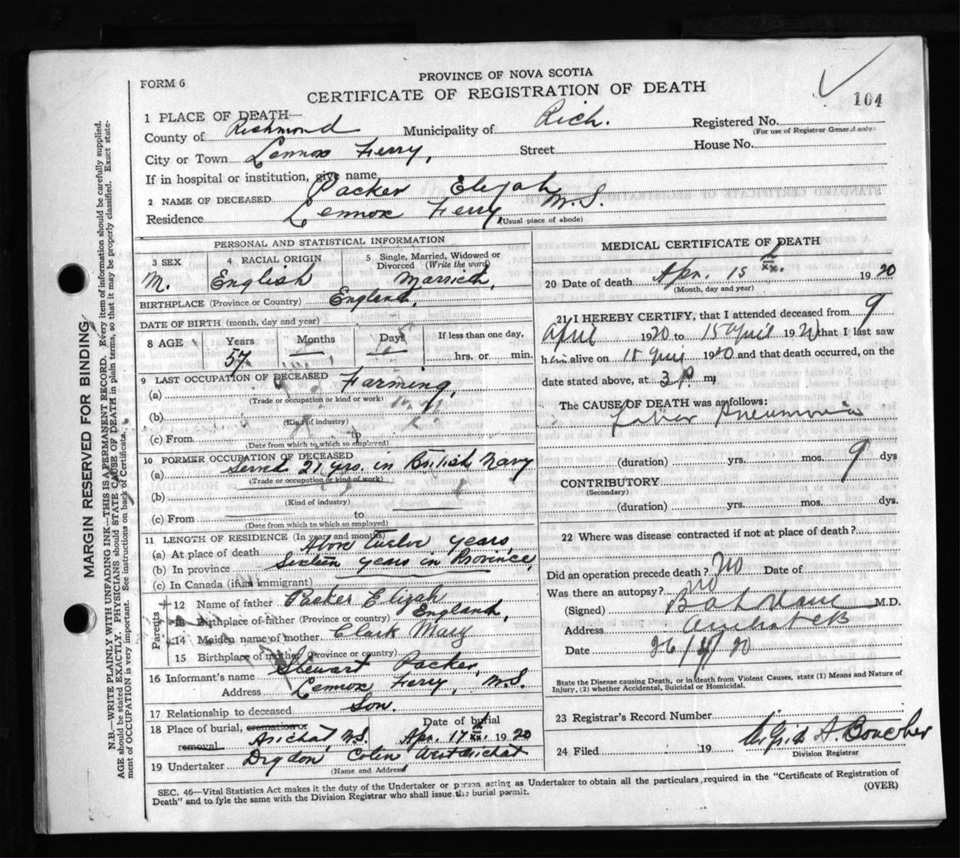 PROVINCE OF NOVA SCOTIA
FORM 6
CERTIFICATE OF REGISTRATION OF DEATH
104
1 PLACE OF DEATH—
County of Richmond Municipality of Rich. Registered No.
(For use of Registrar General only)
City or Town Lennox Ferry, Street House No.
If in hospital or institution, give name
2 NAME OF DECEASED Packer Elijah
Residence Lennox Ferry N.S.
(Usual place of abode)
PERSONAL AND STATISTICAL INFORMATION
3 SEX 4 RACIAL ORIGIN 5 Single, Married, Widowed or Divorced (Write the word)
M. English Married,
BIRTHPLACE (Province or Country) England,
DATE OF BIRTH (month, day and year)
8 AGE Years Months Days If less than one day,
57 hrs. or min.
9 LAST OCCUPATION OF DECEASED
(a) Farming,
(Trade or occupation or kind or work)
(b)
(Kind of industry)
(c) From to
(Date from which to which so employed)
10 FORMER OCCUPATION OF DECEASED
(a) Served 21 yrs. in British Navy
(Trade or occupation or kind of work)
(b)
(Kind of industry)
(c) From to
(Date from which to which so employed)
11 LENGTH OF RESIDENCE (In years and months)
(a) At place of death years,
(b) In province Sixteen years in Province,
(c) In Canada (if an immigrant)
Parents
12 Name of father Packer Elijah
13 Birthplace of father (Province or country) England,
14 Maiden name of mother Clark Mary
15 Birthplace of mother (Province or country)
16 Informant's name Stewart Packer,
Address Lennox Ferry, N.S.
17 Relationship to deceased Son.
18 Place of burial, cremation or removal Arichat, N.S. Date of burial Apr. 17 1920
19 Undertaker Digdon Colin West Arichat
(Name and Address)
MEDICAL CERTIFICATE OF DEATH
20 Date of death Apr. 15 1920
(Month, day and year)
21 I HEREBY CERTIFY, that I attended deceased from 9
April 1920 to 15 April 1920 that I last saw
him alive on 15 1920 and that death occurred, on the
date stated above, at 3 p m
The CAUSE OF DEATH was as follows:
Lobar Pneumonia
(duration) yrs. mos. 9 dys
CONTRIBUTORY
(Secondary)
(duration) yrs. mos. dys.
22 Where was disease contracted if not at place of death?
Did an operation precede death? No Date of
Was there an autopsy? no
(Signed) M.D.
Address
Date 26/4/20
State the Disease causing Death, or in death from Violent Causes, state (1) Means and Nature of
Injury, (2) whether Accidental, Suicidal or Homicidal.
23 Registrar's Record Number
24 Filed 19 Boucher
Division Registrar
SEC. 46—Vital Statistics Act makes it the duty of the Undertaker or person acting as Undertaker to obtain all the particulars required in the "Certificate of Registration of
Death" and to fyle the same with the Division Registrar who shall issue the burial permit.
(OVER)
MARGIN RESERVED FOR BINDING
N.B.—WRITE PLAINLY WITH UNFADING INK—THIS IS A PERMANENT RECORD. Every item of information should be carefully supplied.
AGE should be stated EXACTLY. PHYSICIANS should STATE CAUSE OF DEATH in plain terms, so that it may be properly classified. Exact state-
ment of OCCUPATION is very important. See instructions on back of Certificate.